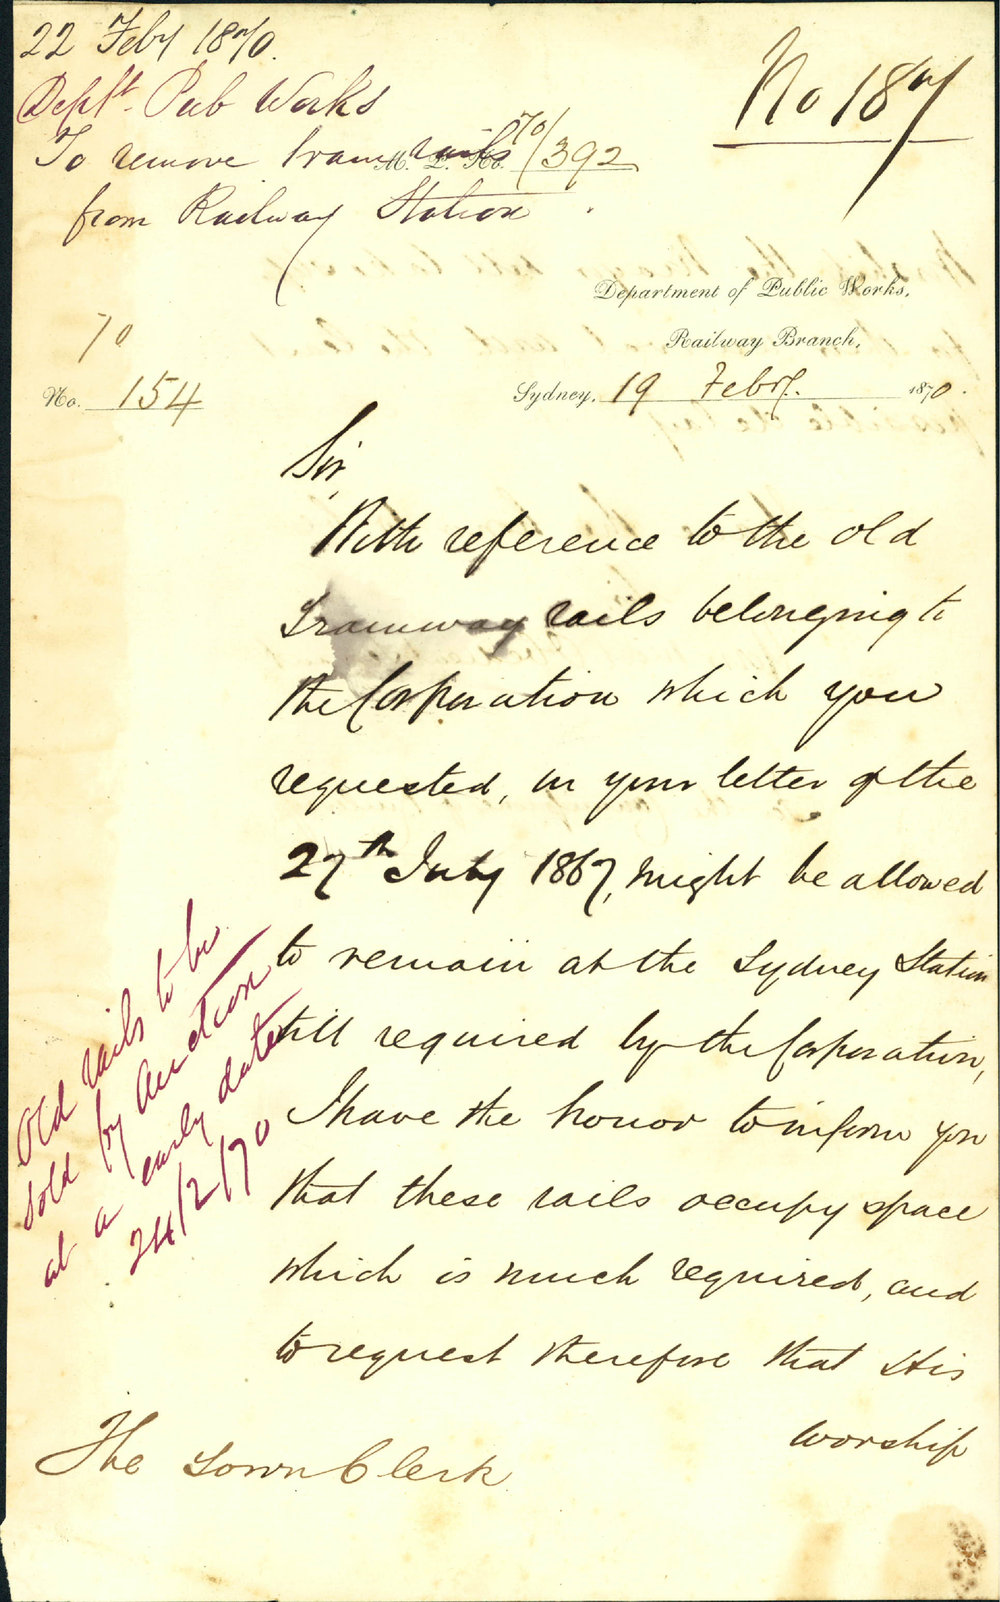 22 Feby 1870.
Deptt. Pub Works
To remove tram rails
from Railway Station
M. P. No. 70/392
No 187
Department of Public Works,
Railway Branch,
70
No. 154
Sydney, 19 Feby. 1870.
Sir,
With reference to the old
Tramway rails belonging to
the Corporation which you
requested, in your letter of the
27th July 1867, might be allowed
to remain at the Sydney Station
till required by the Corporation,
I have the honor to inform you
that these rails occupy space
which is much required, and
to request therefore that His
Worship
The Town Clerk
Old rails to be
sold by Auction
at a early date
24/2/70